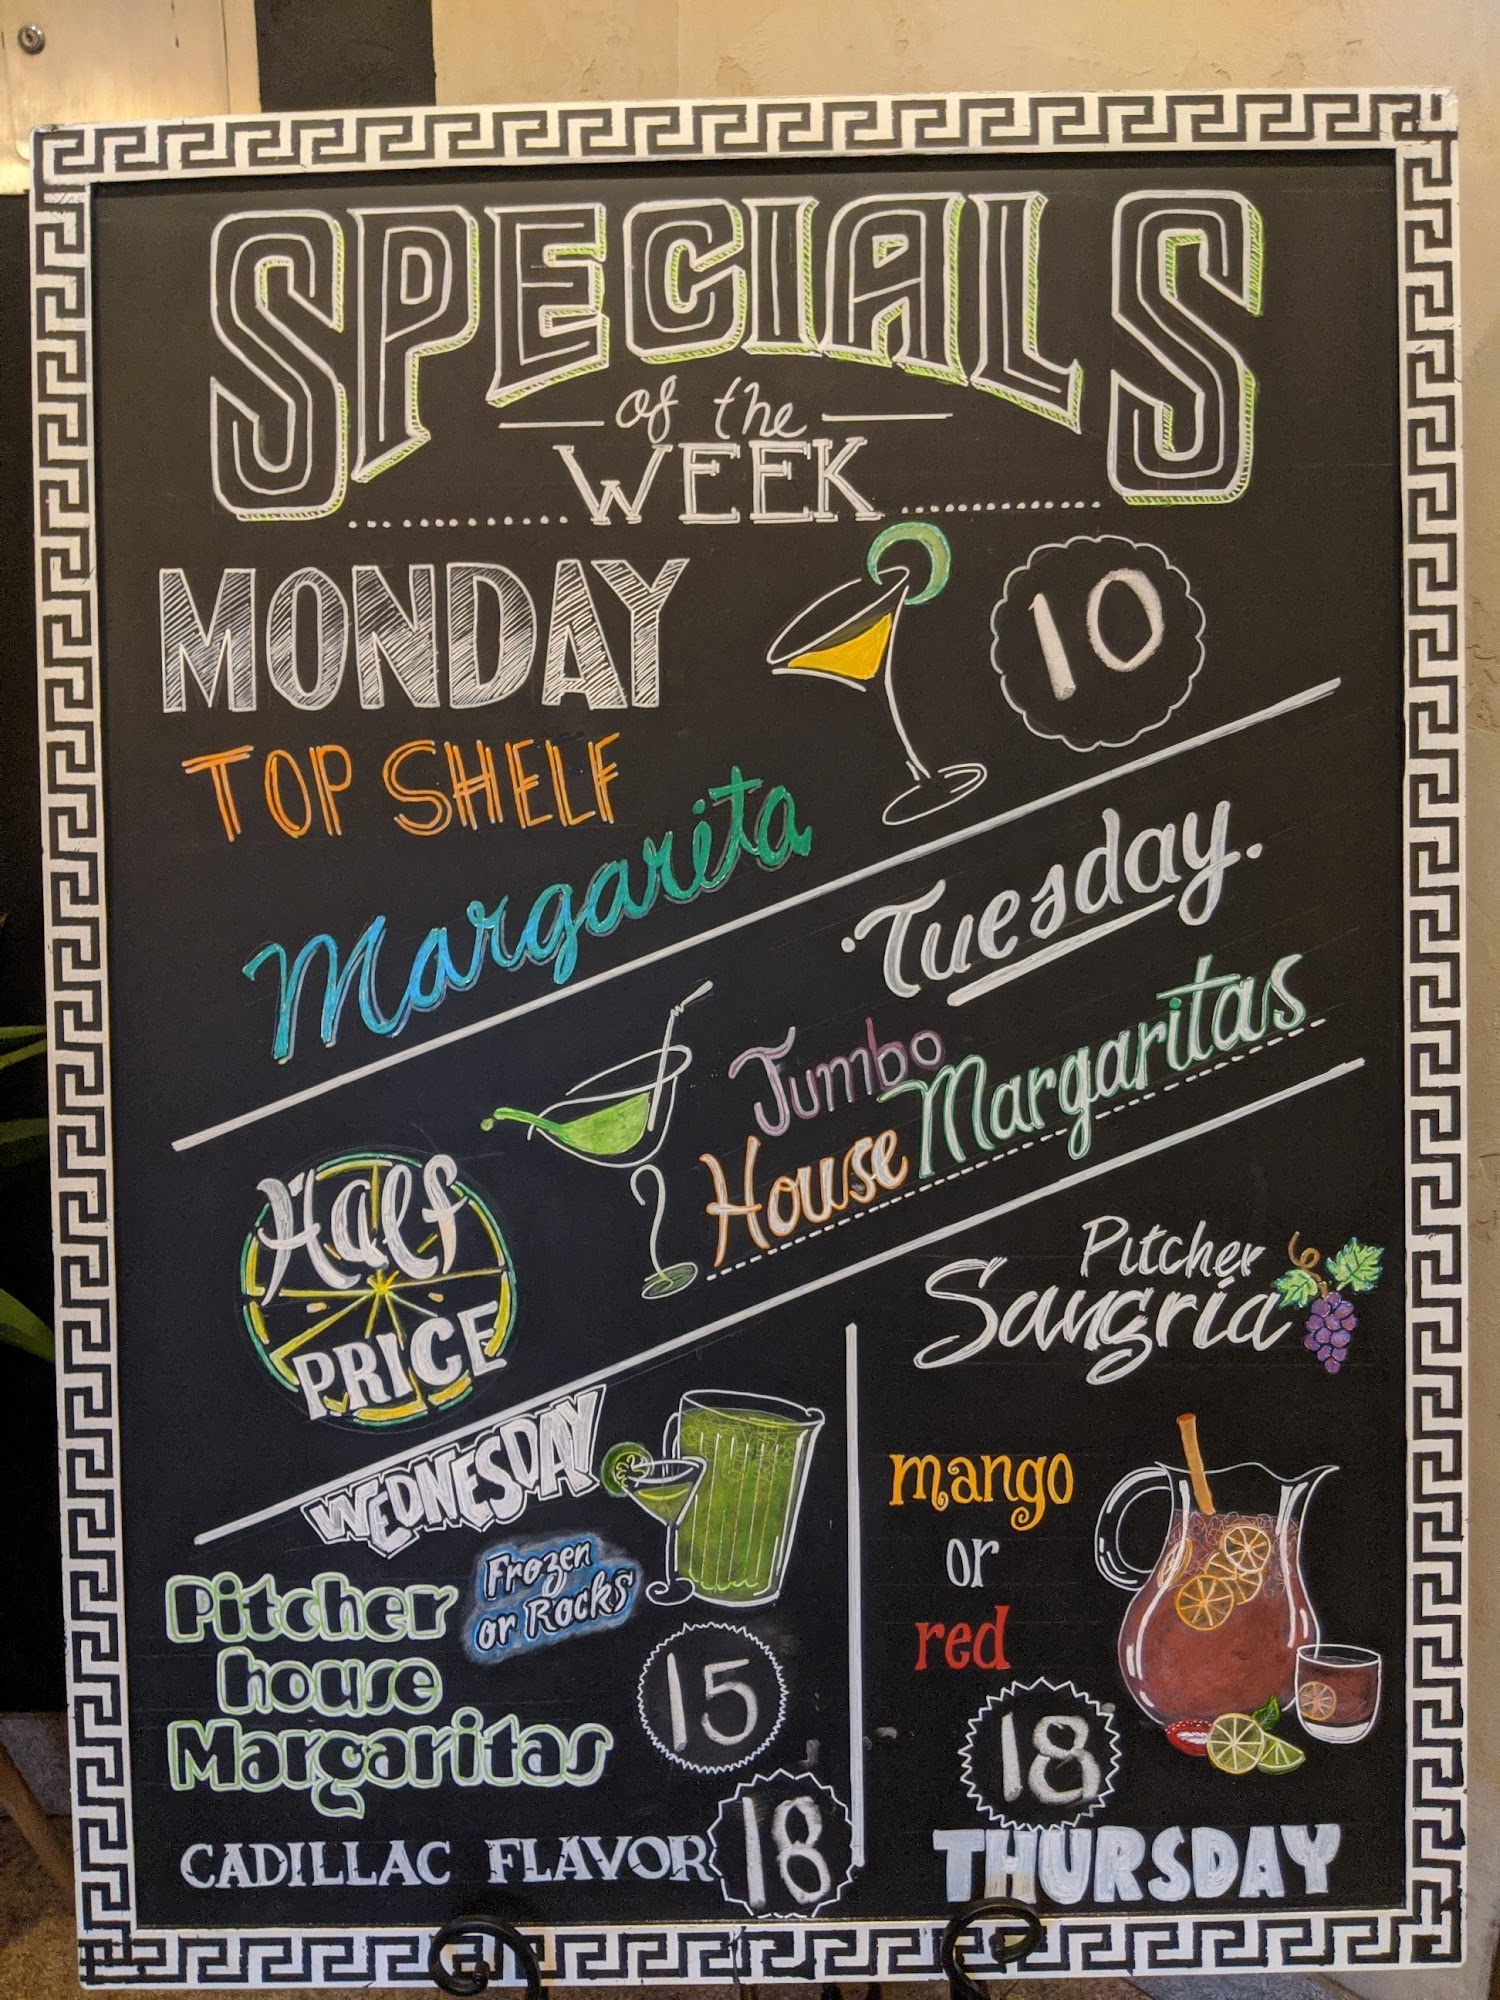 SPECIALS
of the
WEEK
MONDAY
10
TOP SHELF
Margarita
Tuesday.
Jumbo
House Margaritas
Half
PRICE
WEDNESDAY
Pitcher
house
Margaritas
Frozen
or Rocks
15
CADILLAC FLAVOR
18
Pitcher
Sangria
mango
or
red
18
THURSDAY